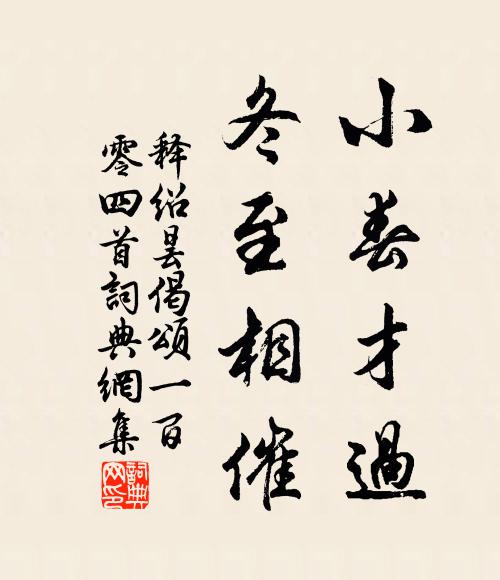 小春才過
冬至相催
释绍昙偈頌一百
零四首詞典網集
詞典
网印